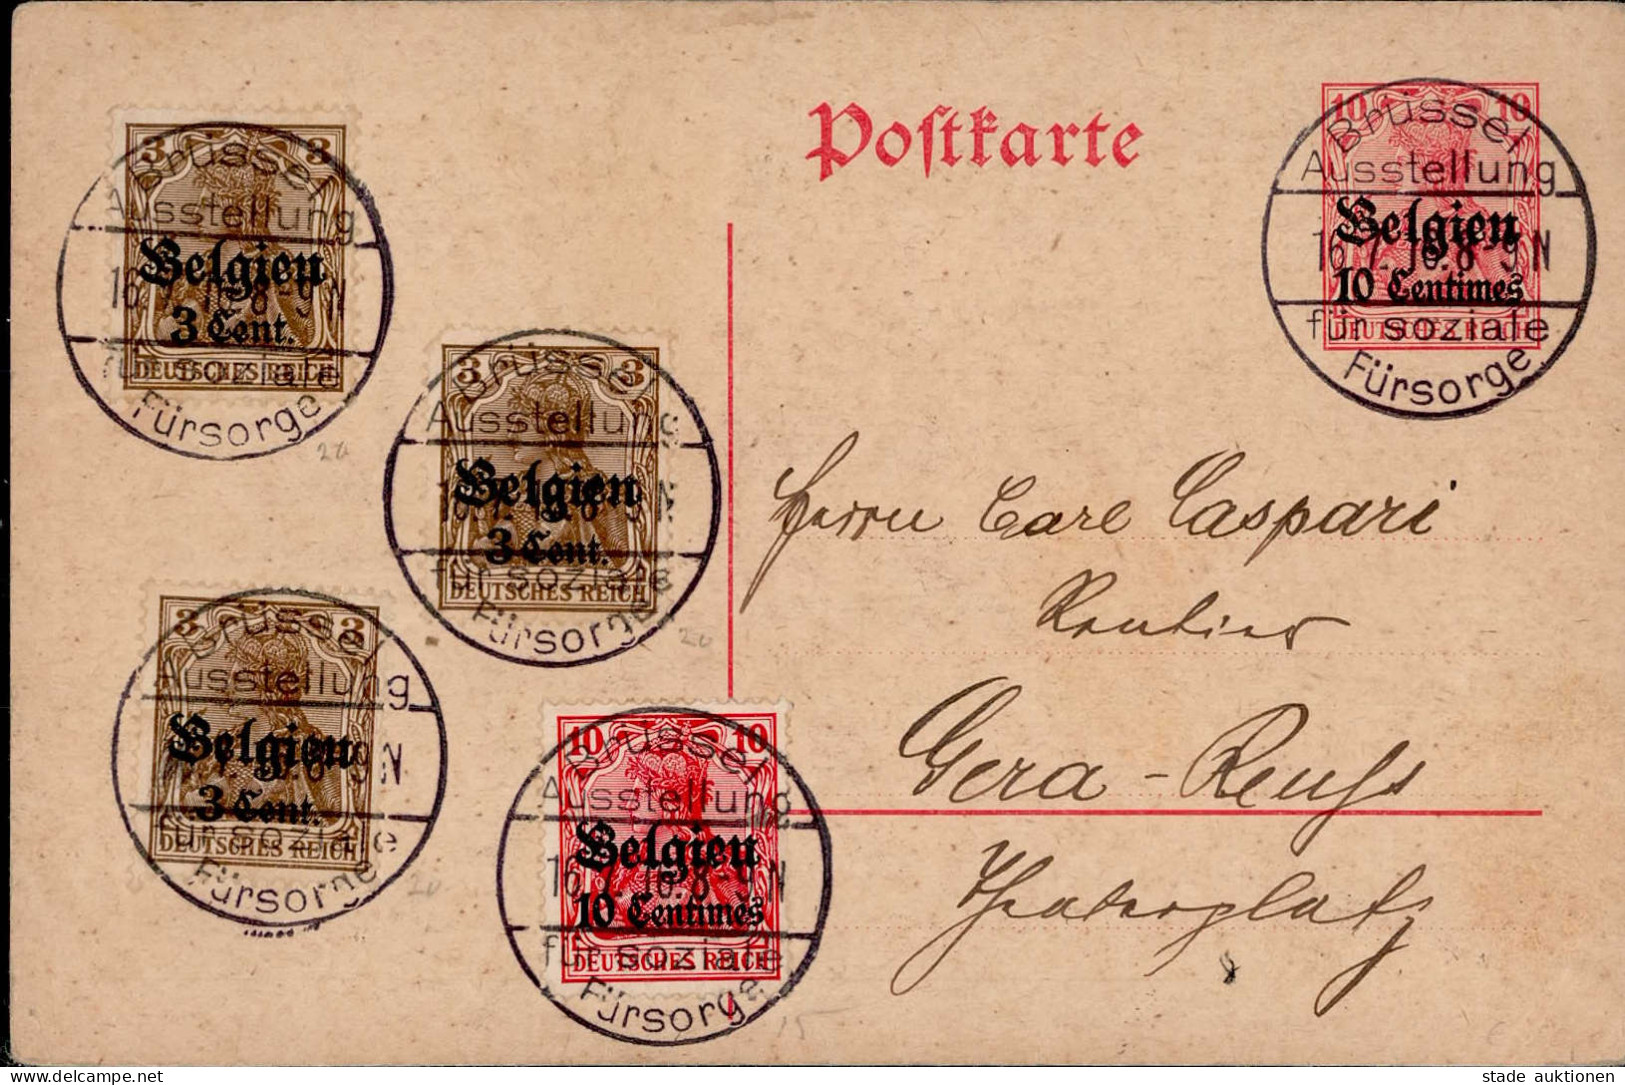 Postkarte
3 3
Belgien
3 Cent.
DEUTSCHES REICH
Brüssel
Ausstellung
16.7.16.8-9N
für soziale
Fürsorge
3 3
Belgien
3 Cent.
DEUTSCHES REICH
Brüssel
Ausstellung
16.7.16.8-9N
für soziale
Fürsorge
3 3
Belgien
3 Cent.
DEUTSCHES REICH
Brüssel
Ausstellung
für soziale
Fürsorge
10 10
Belgien
10 Centimes
DEUTSCHES REICH
Brüssel
Ausstellung
16.7.16.8-9N
für soziale
Fürsorge
10 10
Belgien
10 Centimes
DEUTSCHES REICH
Brüssel
Ausstellung
16.7.16.8-9N
für soziale
Fürsorge
Herrn Carl Caspari
Rentier
Gera-Reuss
Theaterplatz
15
stade auktionen